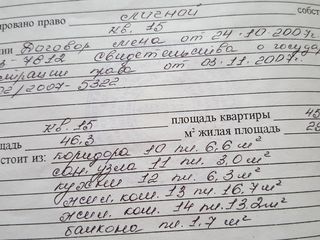 ировано право личной собст
кв. 15
нии Договор мена от 24.10.2007г.
-7812 свидетельства о государ
страции права от 03.11.2007г.
02/2007-5322
кв. 15 площадь квартиры 45
щадь 46,3 м² жилая площадь 2
стоит из: коридора 10 пл. 6,6 м²
сан. узла 11 пл. 3,0 м²
кухни 12 пл. 6,3 м²
жил. ком. 13 пл. 16,7 м²
жил. ком. 14 пл. 13,2 м²
балкона пл. 1,7 м²